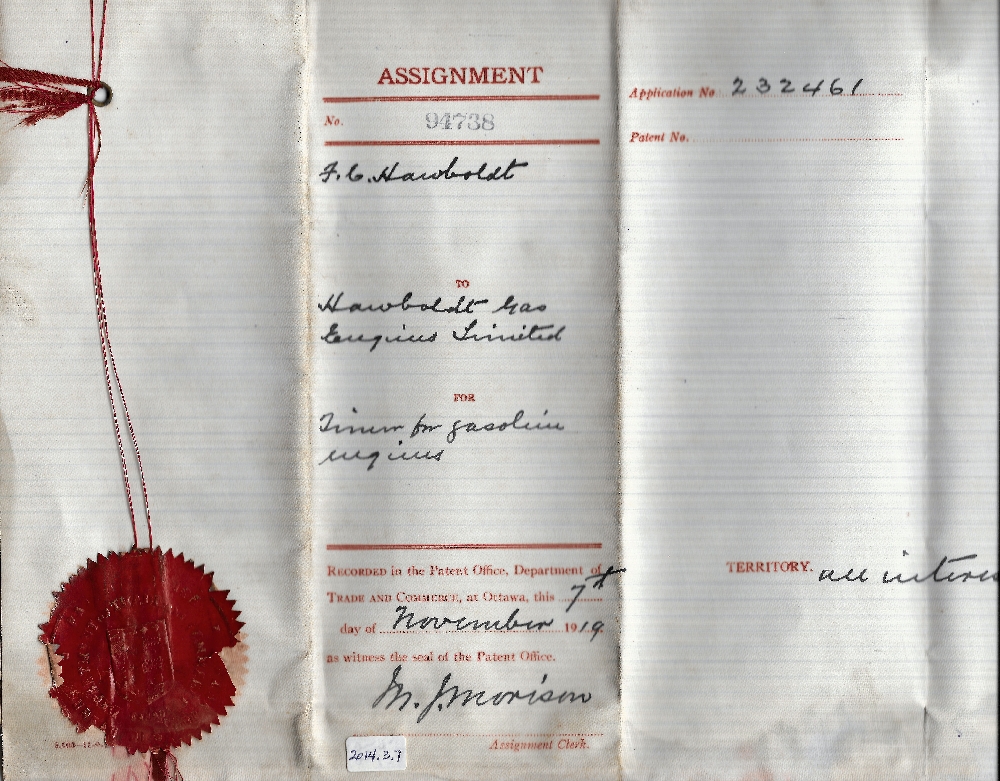 ASSIGNMENT
No. 94738
F.C. Hawboldt
TO
Hawboldt Gas
Engines Limited
FOR
Timer for gasoline
engines
RECORDED in the Patent Office, Department of
TRADE AND COMMERCE, at Ottawa, this 7th
day of November 1919.
as witness the seal of the Patent Office.
M. J. Morison
Assignment Clerk.
2014.3.7
Application No 232461
Patent No.
TERRITORY. all interes